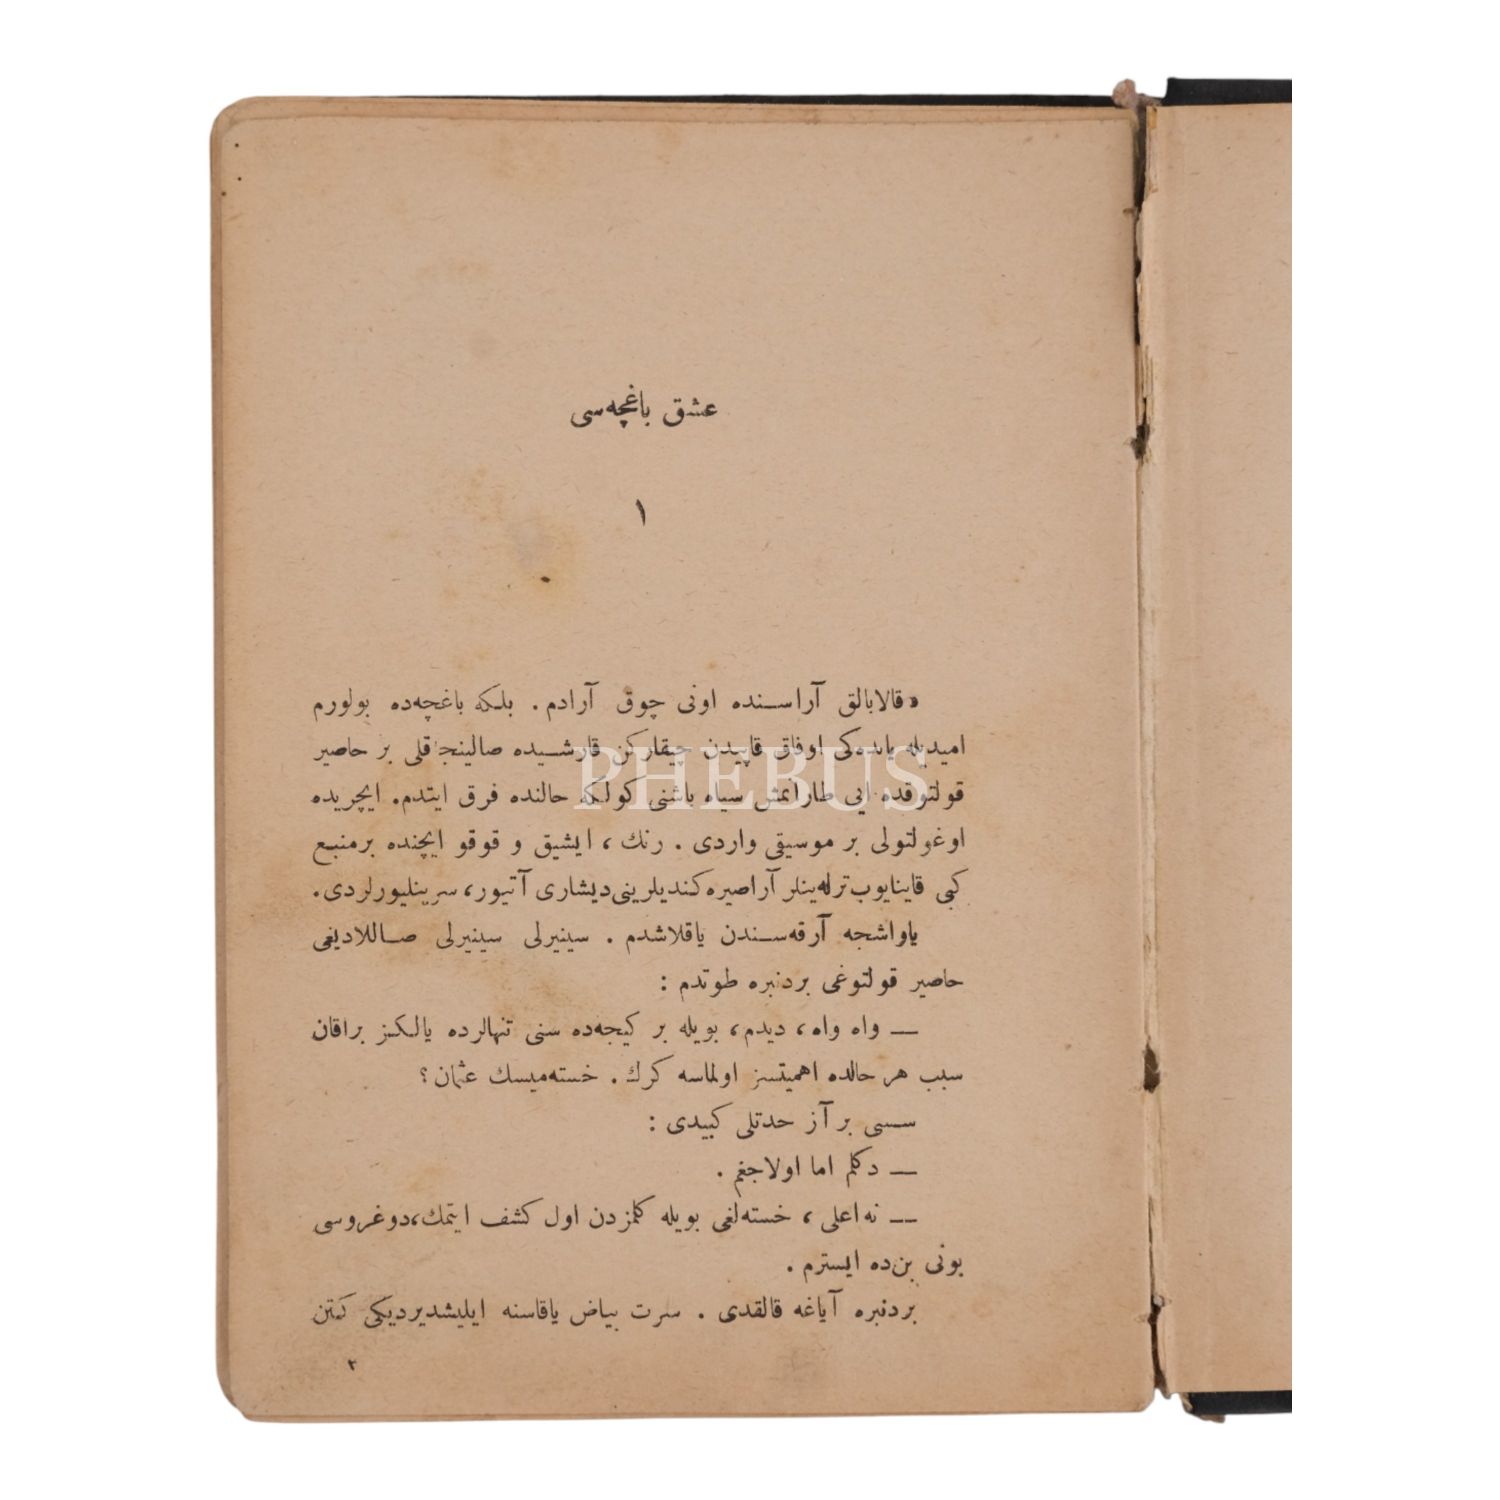 عشق باغچه‌سی
١
« قالابالق آراسنده اونی چوق آرادم . بلكه باغچه‌ده بولورم
اميديله ياندەكی اوفاق قاپيدن چيقاركن قارشيده صالينجاقلی بر حاصير
قولتوقده ايی طارانمش سياه باشنی كولكه حالنده فرق ايتدم . ايچريده
اوغولتولی بر موسيقی واردی . رنك ، ايشيق و قوقو ايچنده بر منبع
كبی قاينايوب ترله‌ينلر آراصيره كنديلرينی ديشاری آتيور ، سرينليورلردی .
ياواشجه آرقه‌سندن ياقلاشدم . سينيرلی سينيرلی صاللاديغی
حاصير قولتوغی بردنبره طوتدم :
— واه واه ، ديدم ، بويله بر كيجه‌ده سنی تنهالرده يالكز براقان
سبب هر حالده اهميتسز اولماسه كرك . خسته‌ميسك عثمان ؟
سسی بر آز حدتلی كبيدی :
— دكلم اما اولاجغم .
— نه اعلی ، خسته‌لغی بويله كلمزدن اول كشف ايتمك ، دوغروسی
بونی بن‌ده ايسترم .
بردنبره آياغه قالقدی . سرت بياض ياقاسنه ايليشديرديكی كتن
٢
PHEBUS